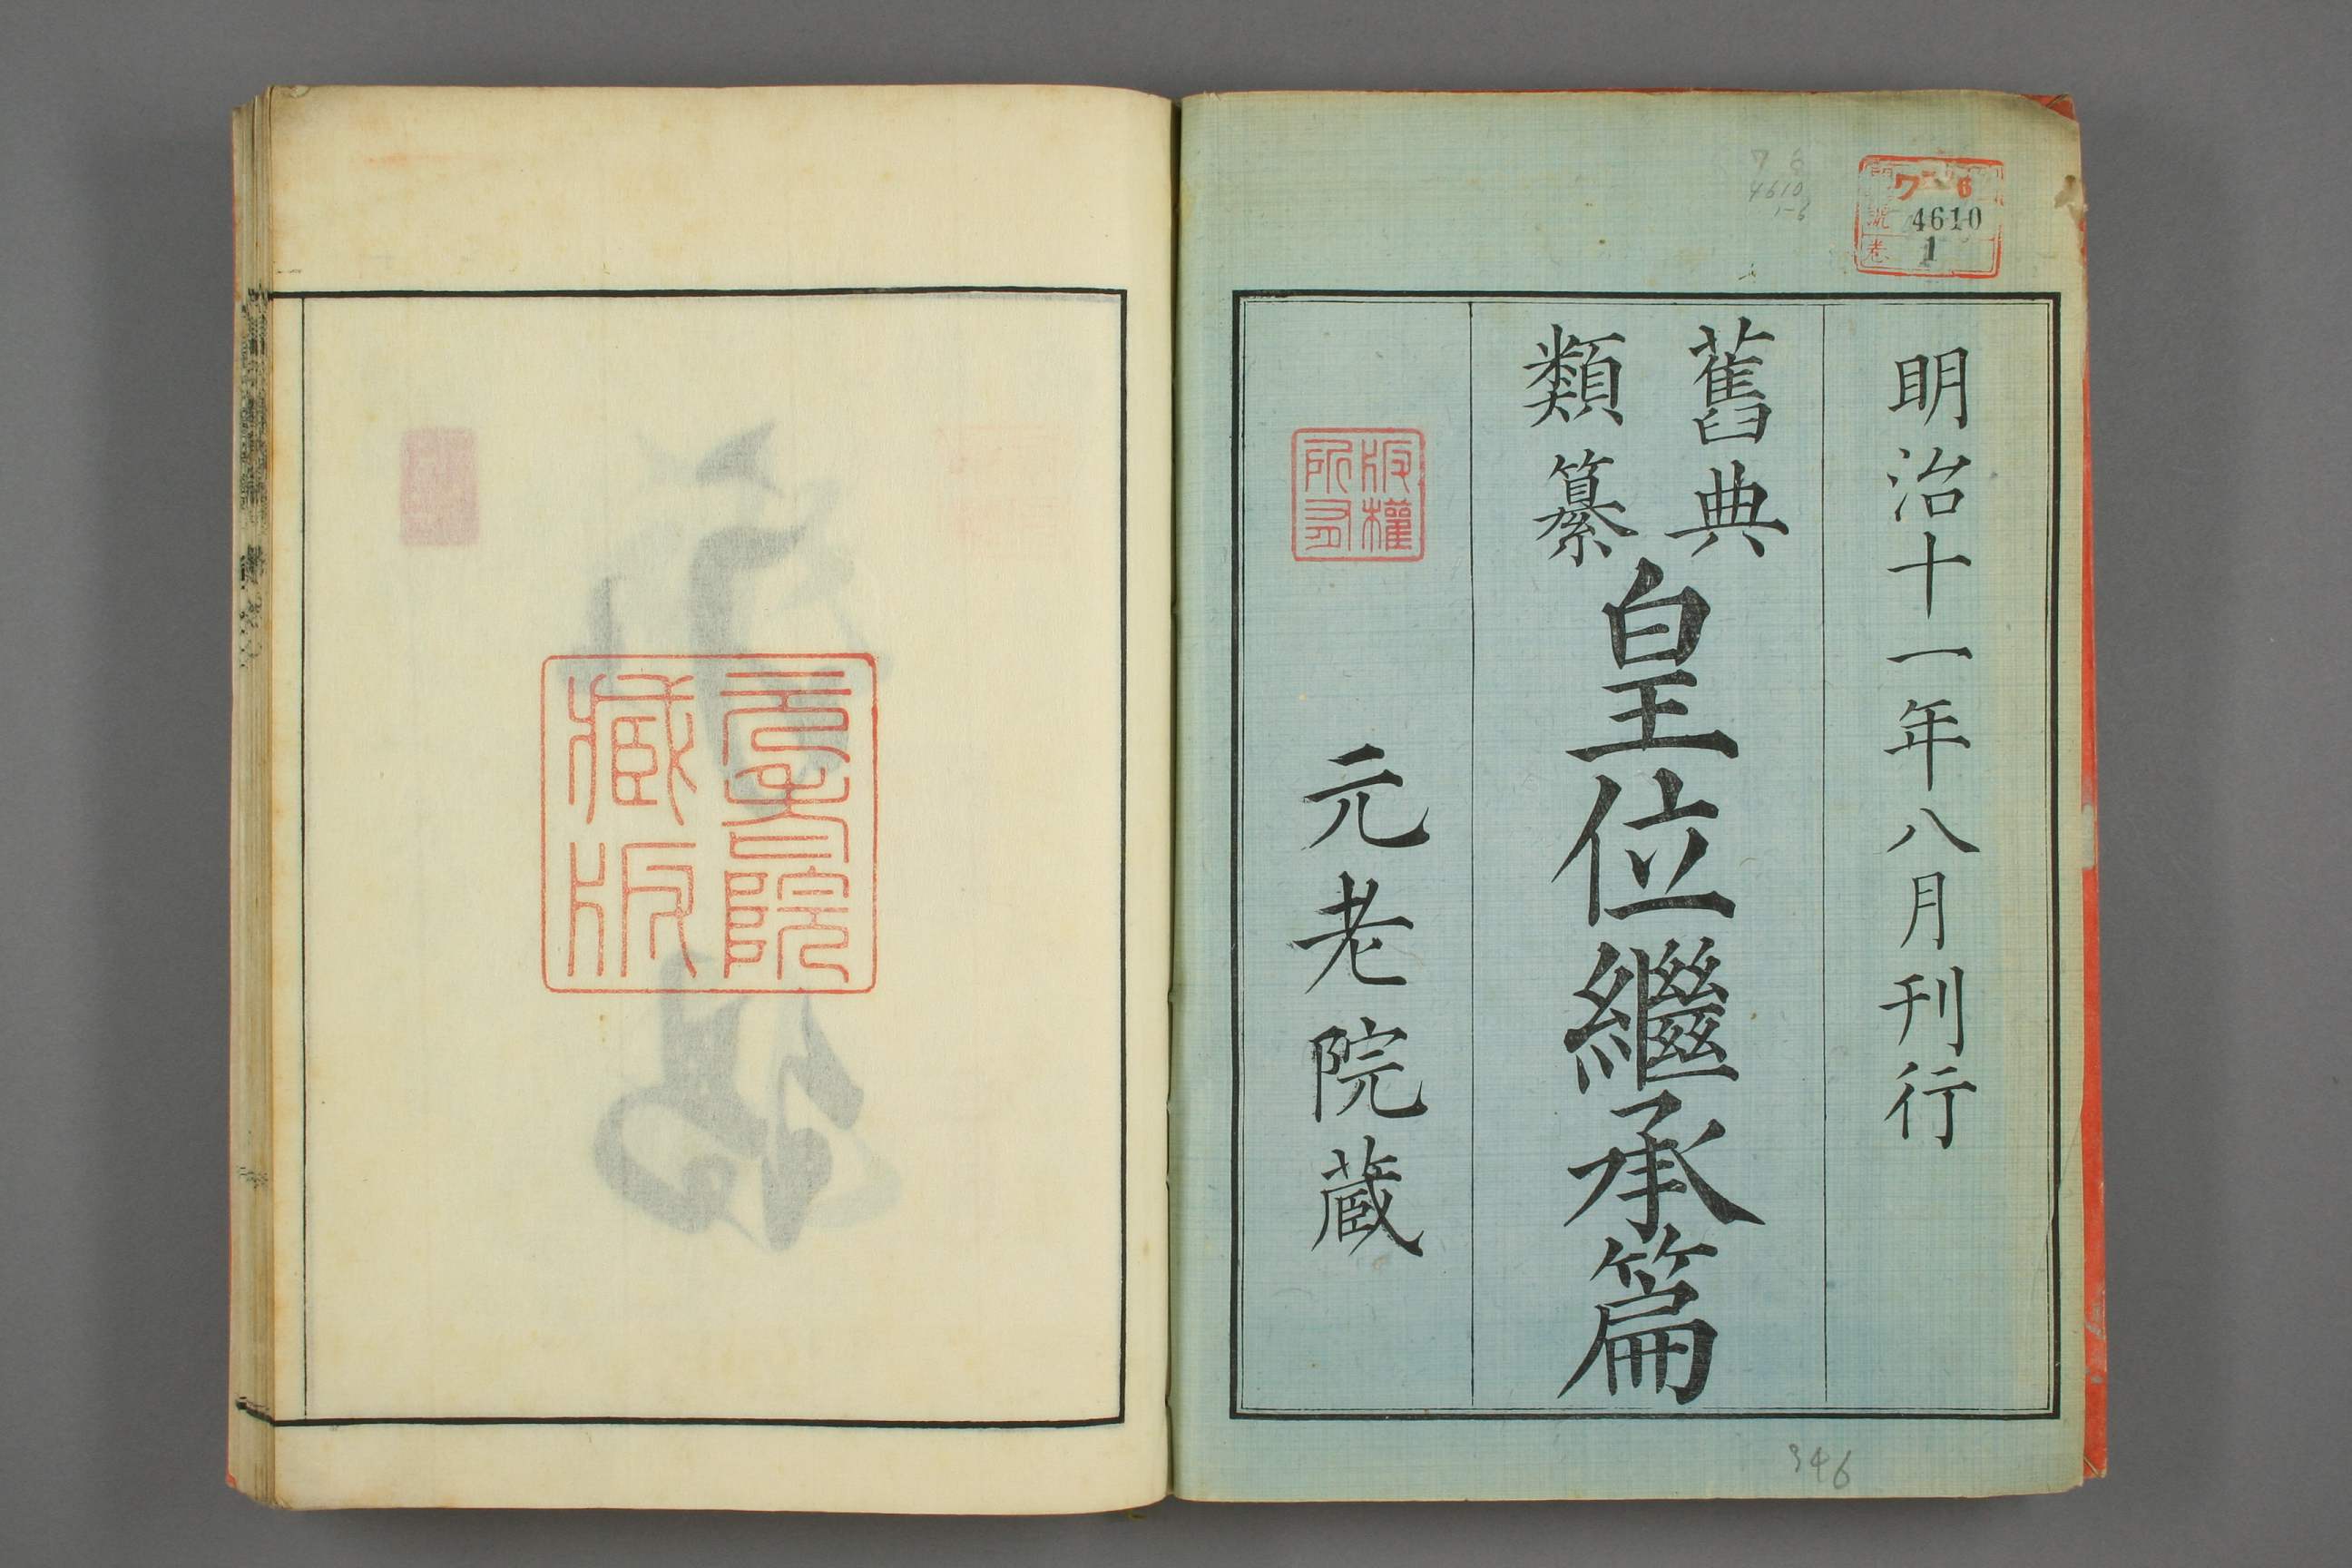 明治十一年八月刊行
舊典
類纂
皇位繼承篇
版權
所有
元老院蔵
門 ワ 6
號 4610
卷 1
4610
1-6
346
元老院
藏版